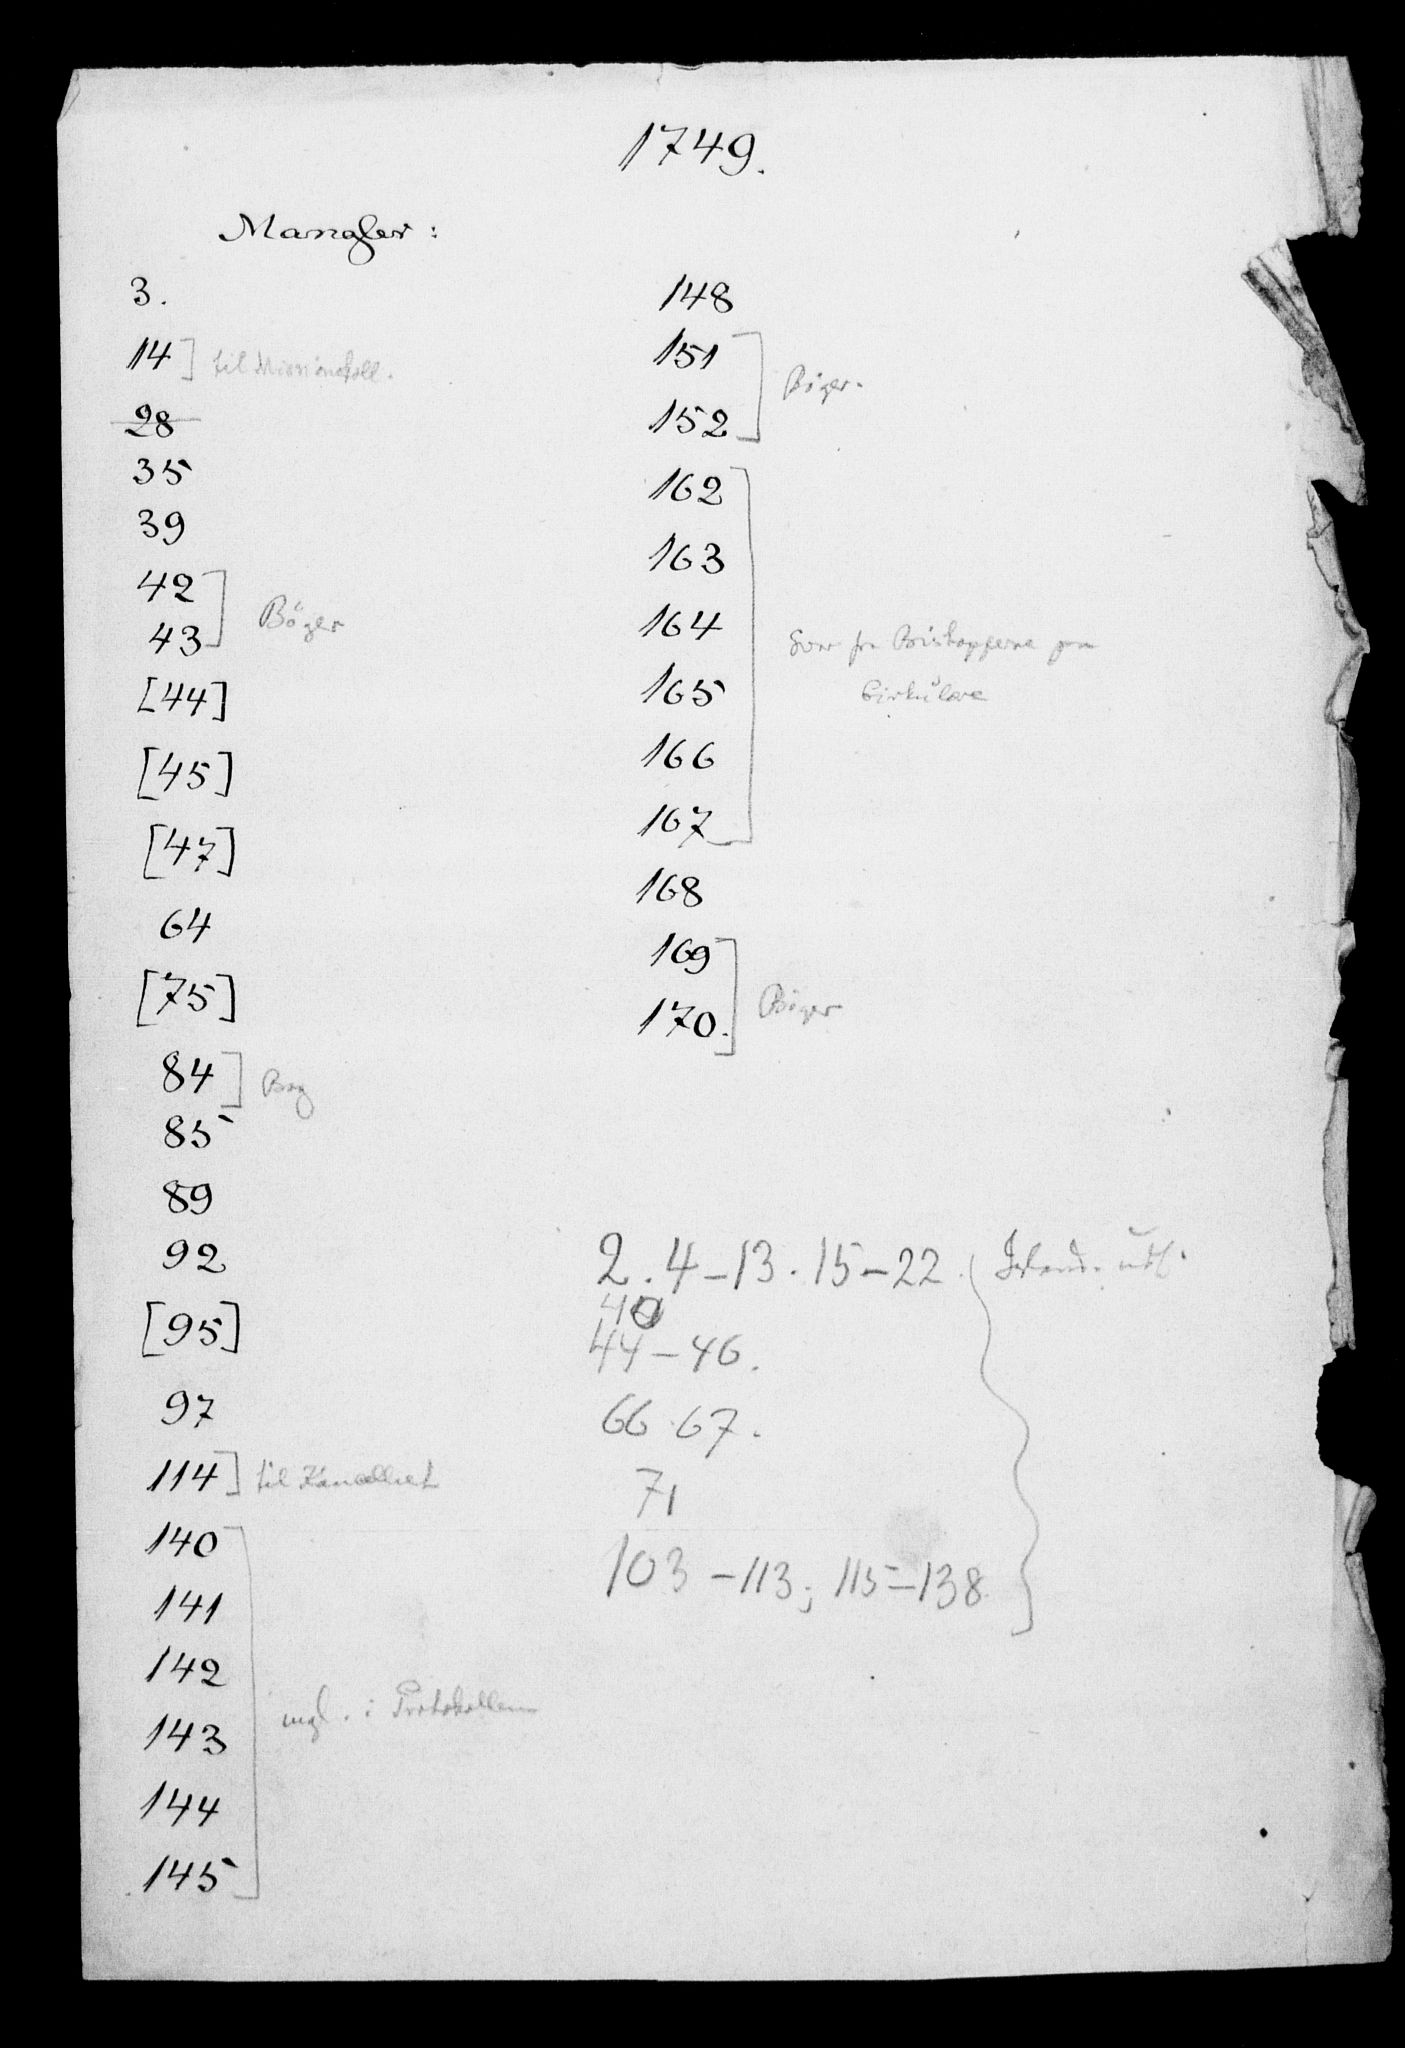 1749.
Mangler:
3.
14] til Missionskoll.
28
35
39
42
43] Bøger
[44]
[45]
[47]
64
[75]
84] Bog
85
89
92
[95]
97
114] til Kancelliet
140
141
142
143
144
145] mgl. i Protokollen
148
151
152] Bøger.
162
163
164
165
166
167] Svar fra Biskopperne paa
Cirkulære
168
169
170.] Bøger
2. 4-13. 15-22. } Island. udl.
40
44-46.
66 67.
71
103-113; 115-138